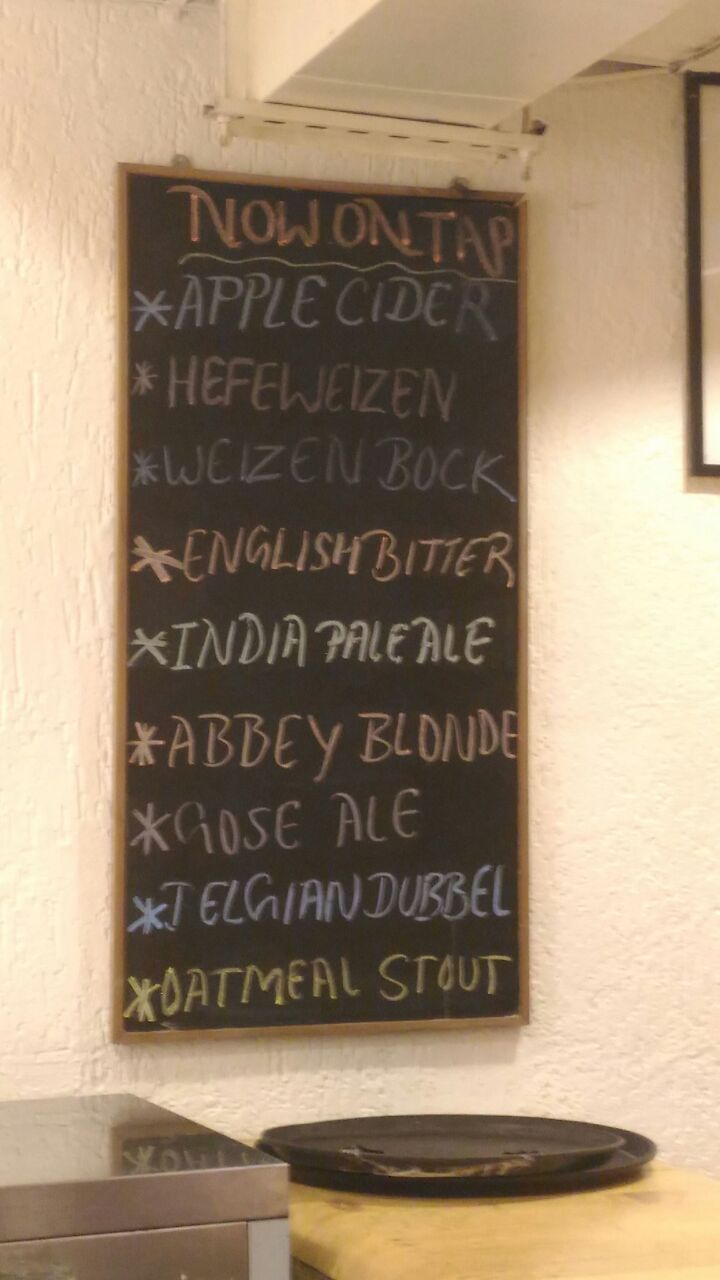 NOW ON TAP
*APPLE CIDER
*HEFEWEIZEN
*WEIZEN BOCK
*ENGLISH BITTER
*INDIA PALE ALE
*ABBEY BLONDE
*GOSE ALE
*BELGIAN DUBBEL
*OATMEAL STOUT